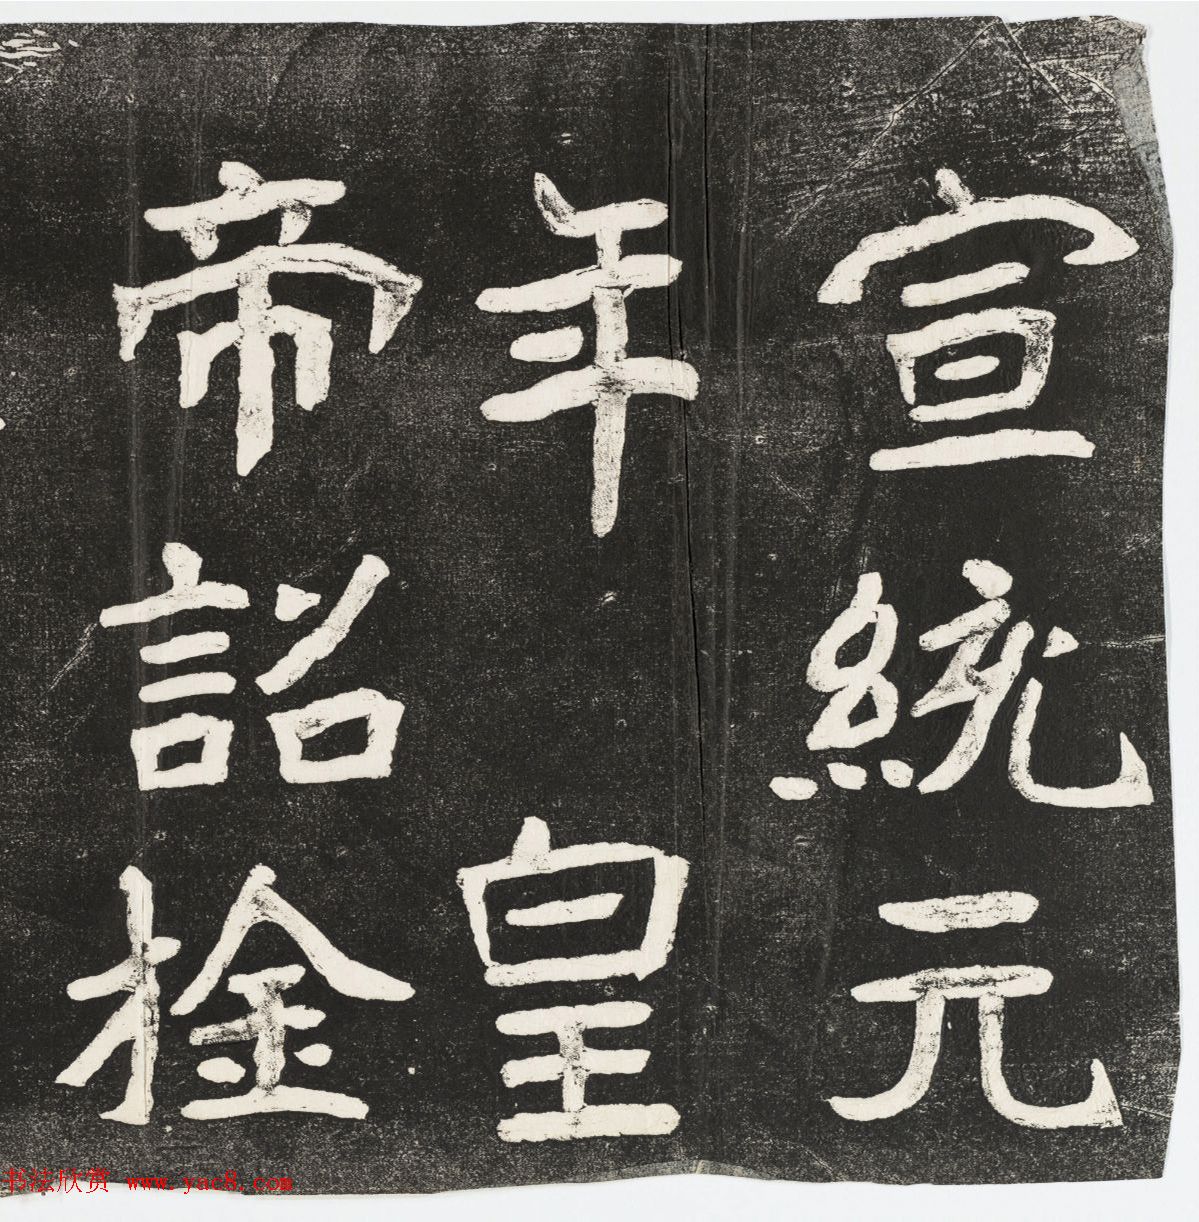 宣統元
年 皇
帝詔捦
书法欣赏 www.yac8.com